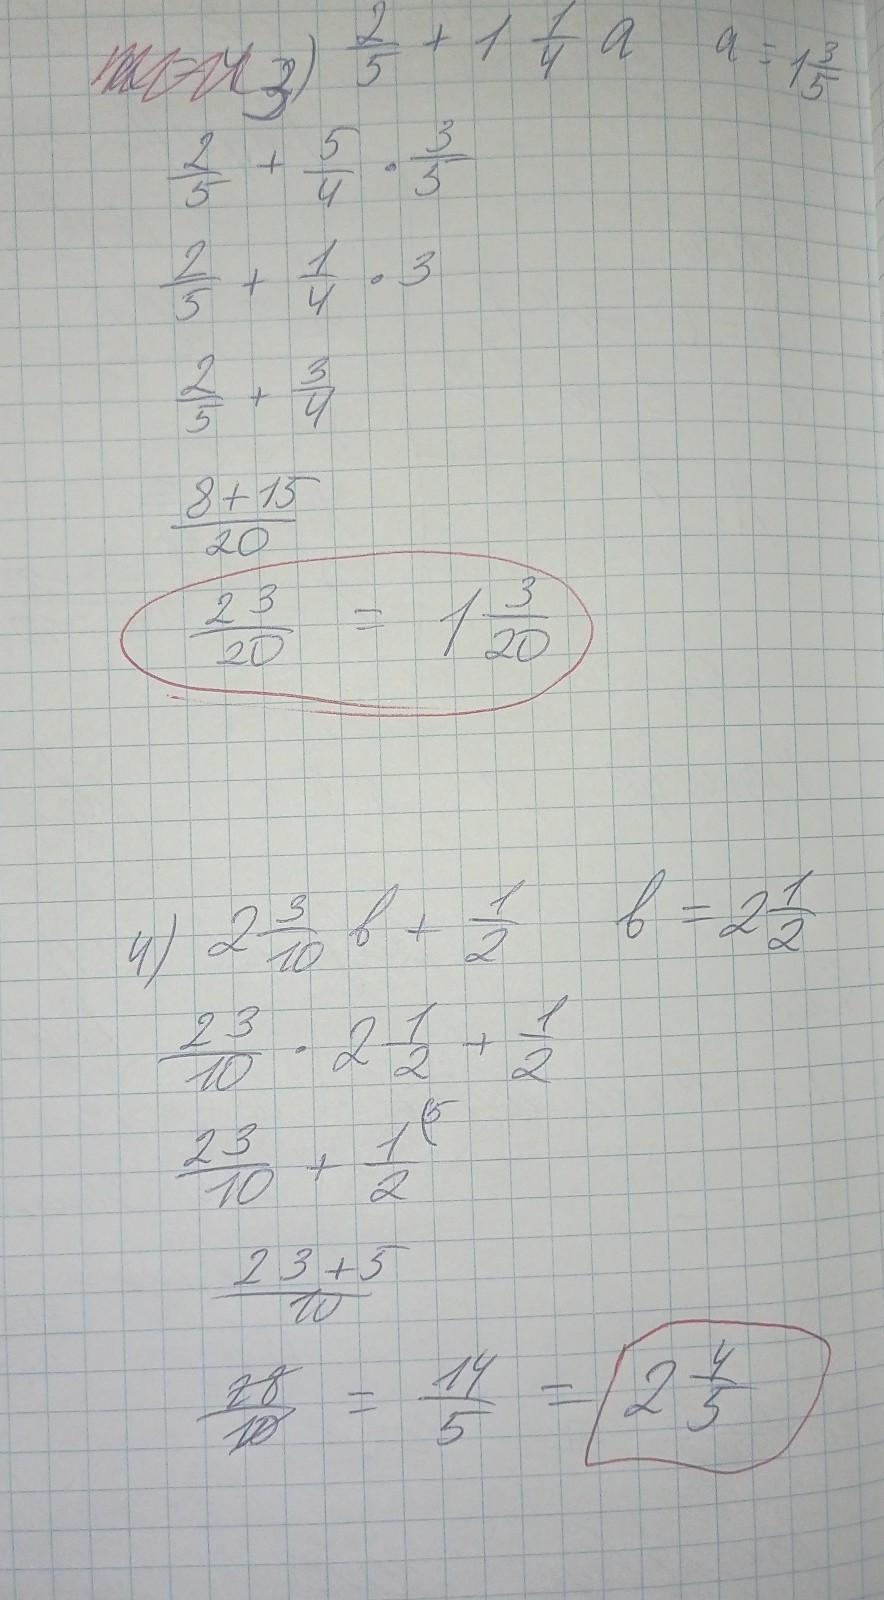 3) 2/5 + 1 1/4 a a = 1 3/5
2/5 + 5/4 · 3/5
2/5 + 1/4 · 3
2/5 + 3/4
8+15/20
23/20 = 1 3/20
4) 2 3/10 b + 1/2 b = 2 1/2
23/10 · 2 1/2 + 1/2
23/10 + 1/2 (5
23+5/10
28/10 = 14/5 = 2 4/5